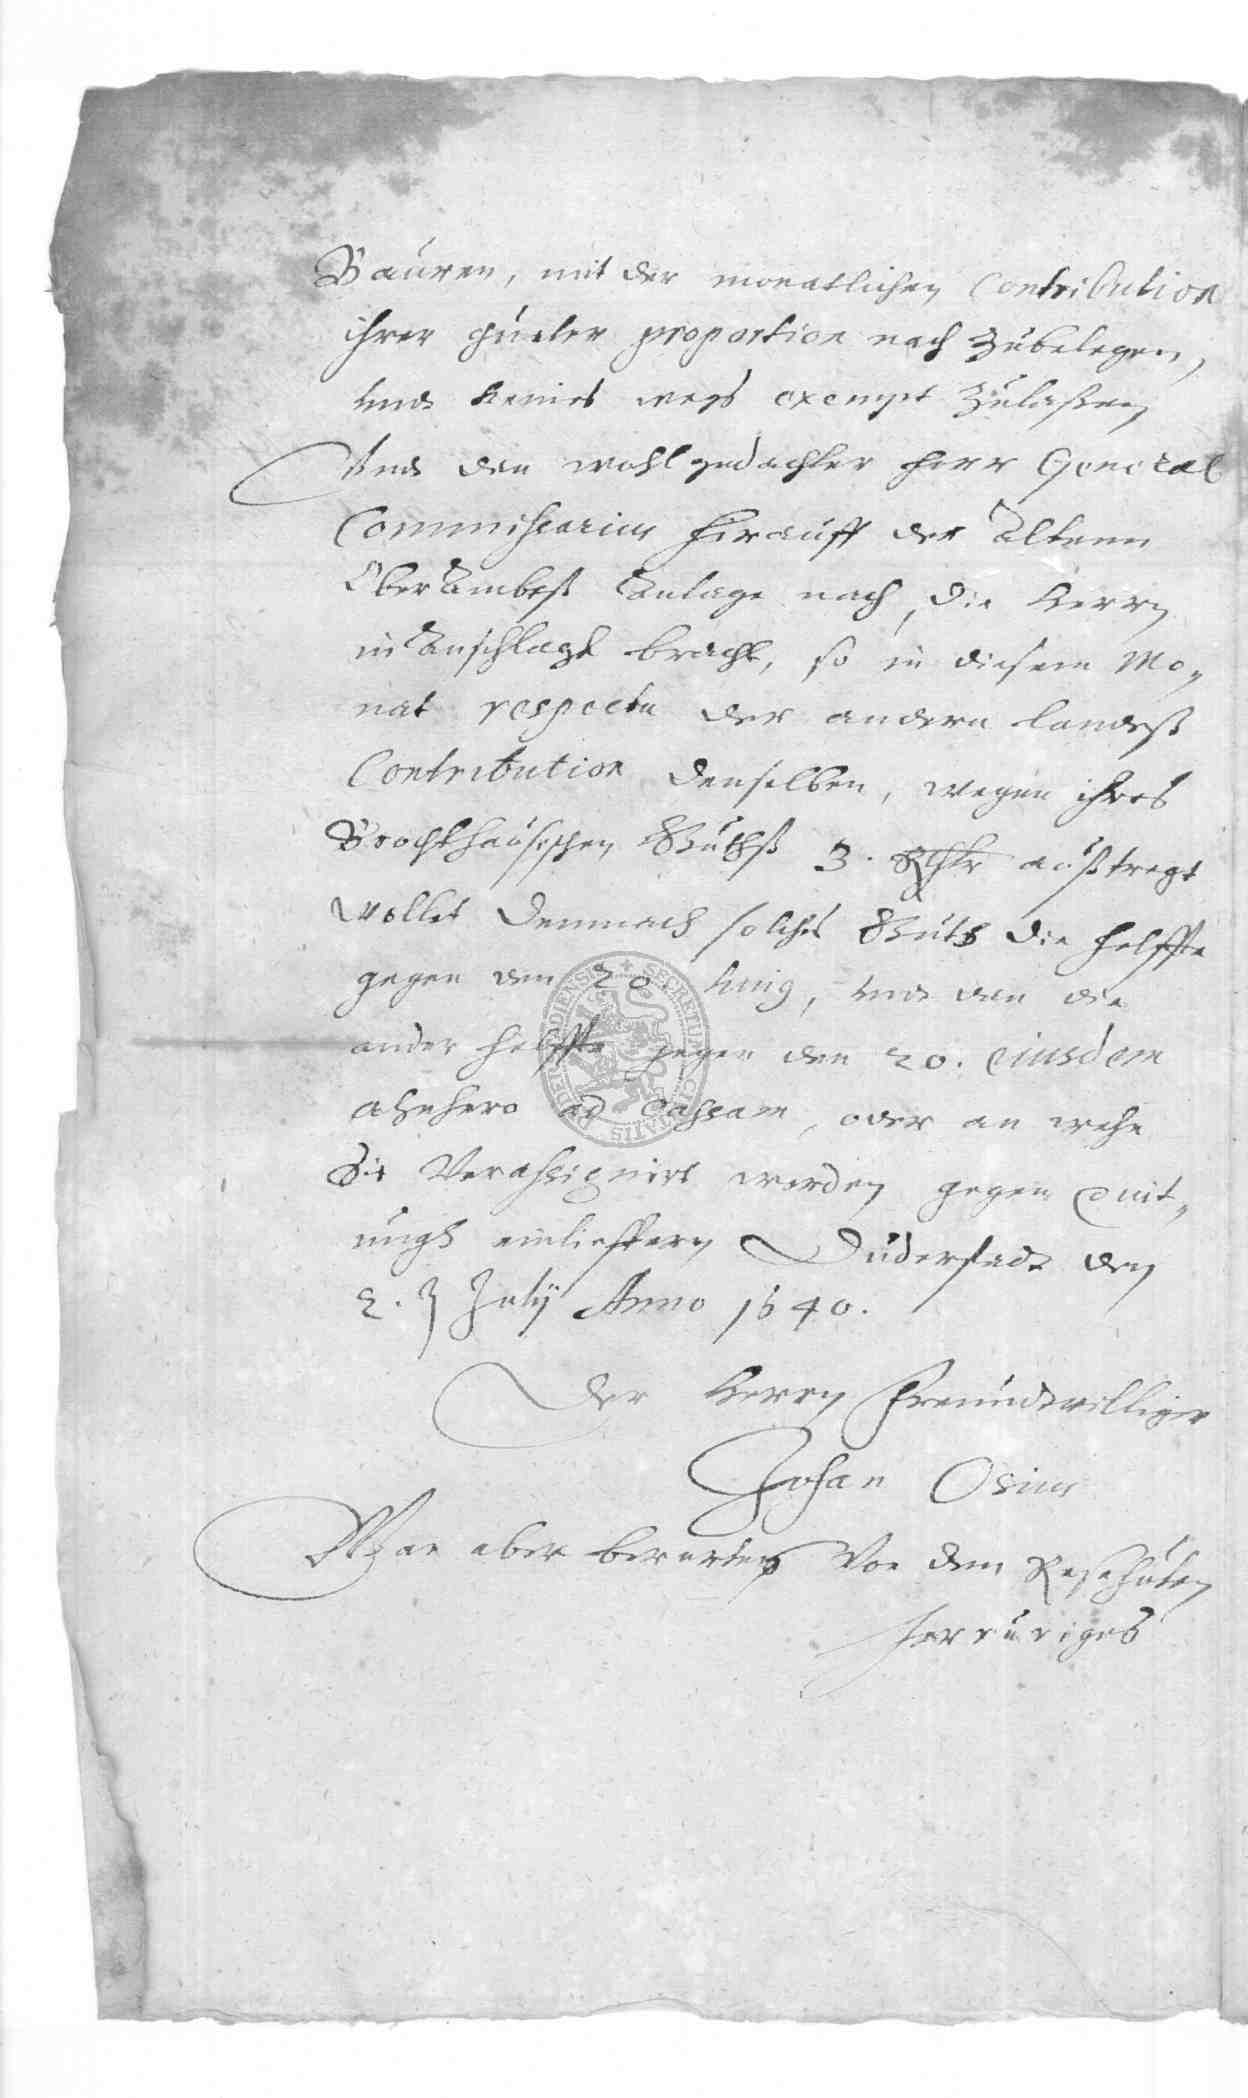 Bauren, mit der monatlichen Contribution
ihrer güeter proportion nach zubelegen,
vnd keines wegs exempt zulaßen
Vnd den wohlgedachter herr General
Commissarius hierauff der Altenn
OberAmbtß Anlage nach, die Herrn
in Anschlagk bracht, so in diesem Mo-
nat respectu der andern landeß
Contribution denselben, wegen ihres
Brochthaüsischen Guthß 3. Rthlr außtregt
wollet demnach solches Guth die helffte
gegen den 20. huius, vnd den die
ander helffte gegen den 20. eiusdem
anhero ad Cassam, oder an wehn
Sie Verassignirt werden gegen Quit-
ungk einlieffern Duderstadt den
2. July Anno 1640.
Der Herrn Freundtwilliger
Johan Osius
Wan aber von den